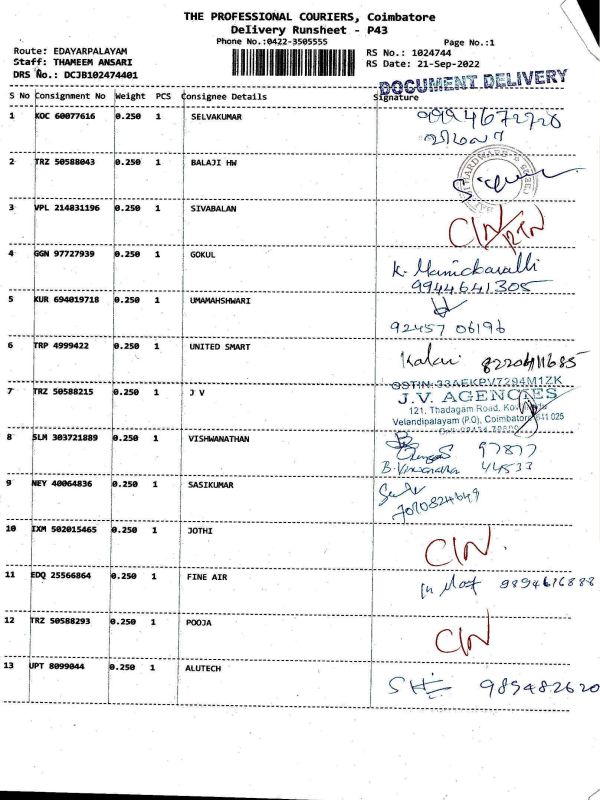 THE PROFESSIONAL COURIERS, Coimbatore
Delivery Runsheet - P43
Phone No.:0422-3505555
Page No.:1
Route: EDAYARPALAYAM
RS No.: 1024744
Staff: THAMEEM ANSARI
RS Date: 21-Sep-2022
DRS No.: DCJB102474401
DOCUMENT DELIVERY
S No Consignment No Weight PCS Consignee Details Signature
1 KOC 60077616 0.250 1 SELVAKUMAR 9994672728
2 TRZ 50588043 0.250 1 BALAJI HW
3 VPL 214831196 0.250 1 SIVABALAN C/N/RTN
4 GGN 97727939 0.250 1 GOKUL K. Manickavalli
9944641305
5 KUR 694019718 0.250 1 UMAMAHSHWARI
92457 06196
6 TRP 4999422 0.250 1 UNITED SMART Kalai
GSTIN: 33AEKPV7294M1ZK
7 TRZ 50588215 0.250 1 J V J.V. AGENCIES
121, Thadagam Road,
Velandipalayam (P.O), Coimbatore 641 025
8 SLM 303721889 0.250 1 VISHWANATHAN 97877
44533
9 NEY 40064836 0.250 1 SASIKUMAR
7010824649
10 IXM 502015465 0.250 1 JOTHI C/N.
11 EDQ 25566864 0.250 1 FINE AIR 9894616888
12 TRZ 50588293 0.250 1 POOJA C/N
13 UPT 8099044 0.250 1 ALUTECH 989482620